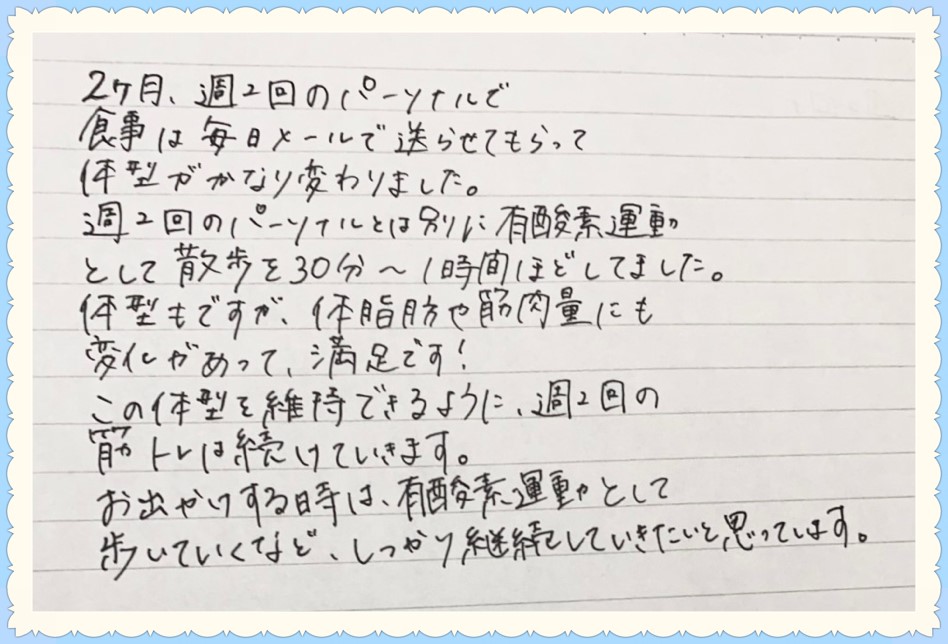 2ヶ月、週2回のパーソナルで
食事は毎日メールで送らせてもらって
体型がかなり変わりました。
週2回のパーソナルとは別に有酸素運動
として散歩を30分〜1時間ほどしてました。
体型もですが、体脂肪や筋肉量にも
変化があって、満足です!
この体型を維持できるように、週2回の
筋トレは続けていきます。
お出かけする時は、有酸素運動として
歩いていくなど、しっかり継続していきたいと思っています。